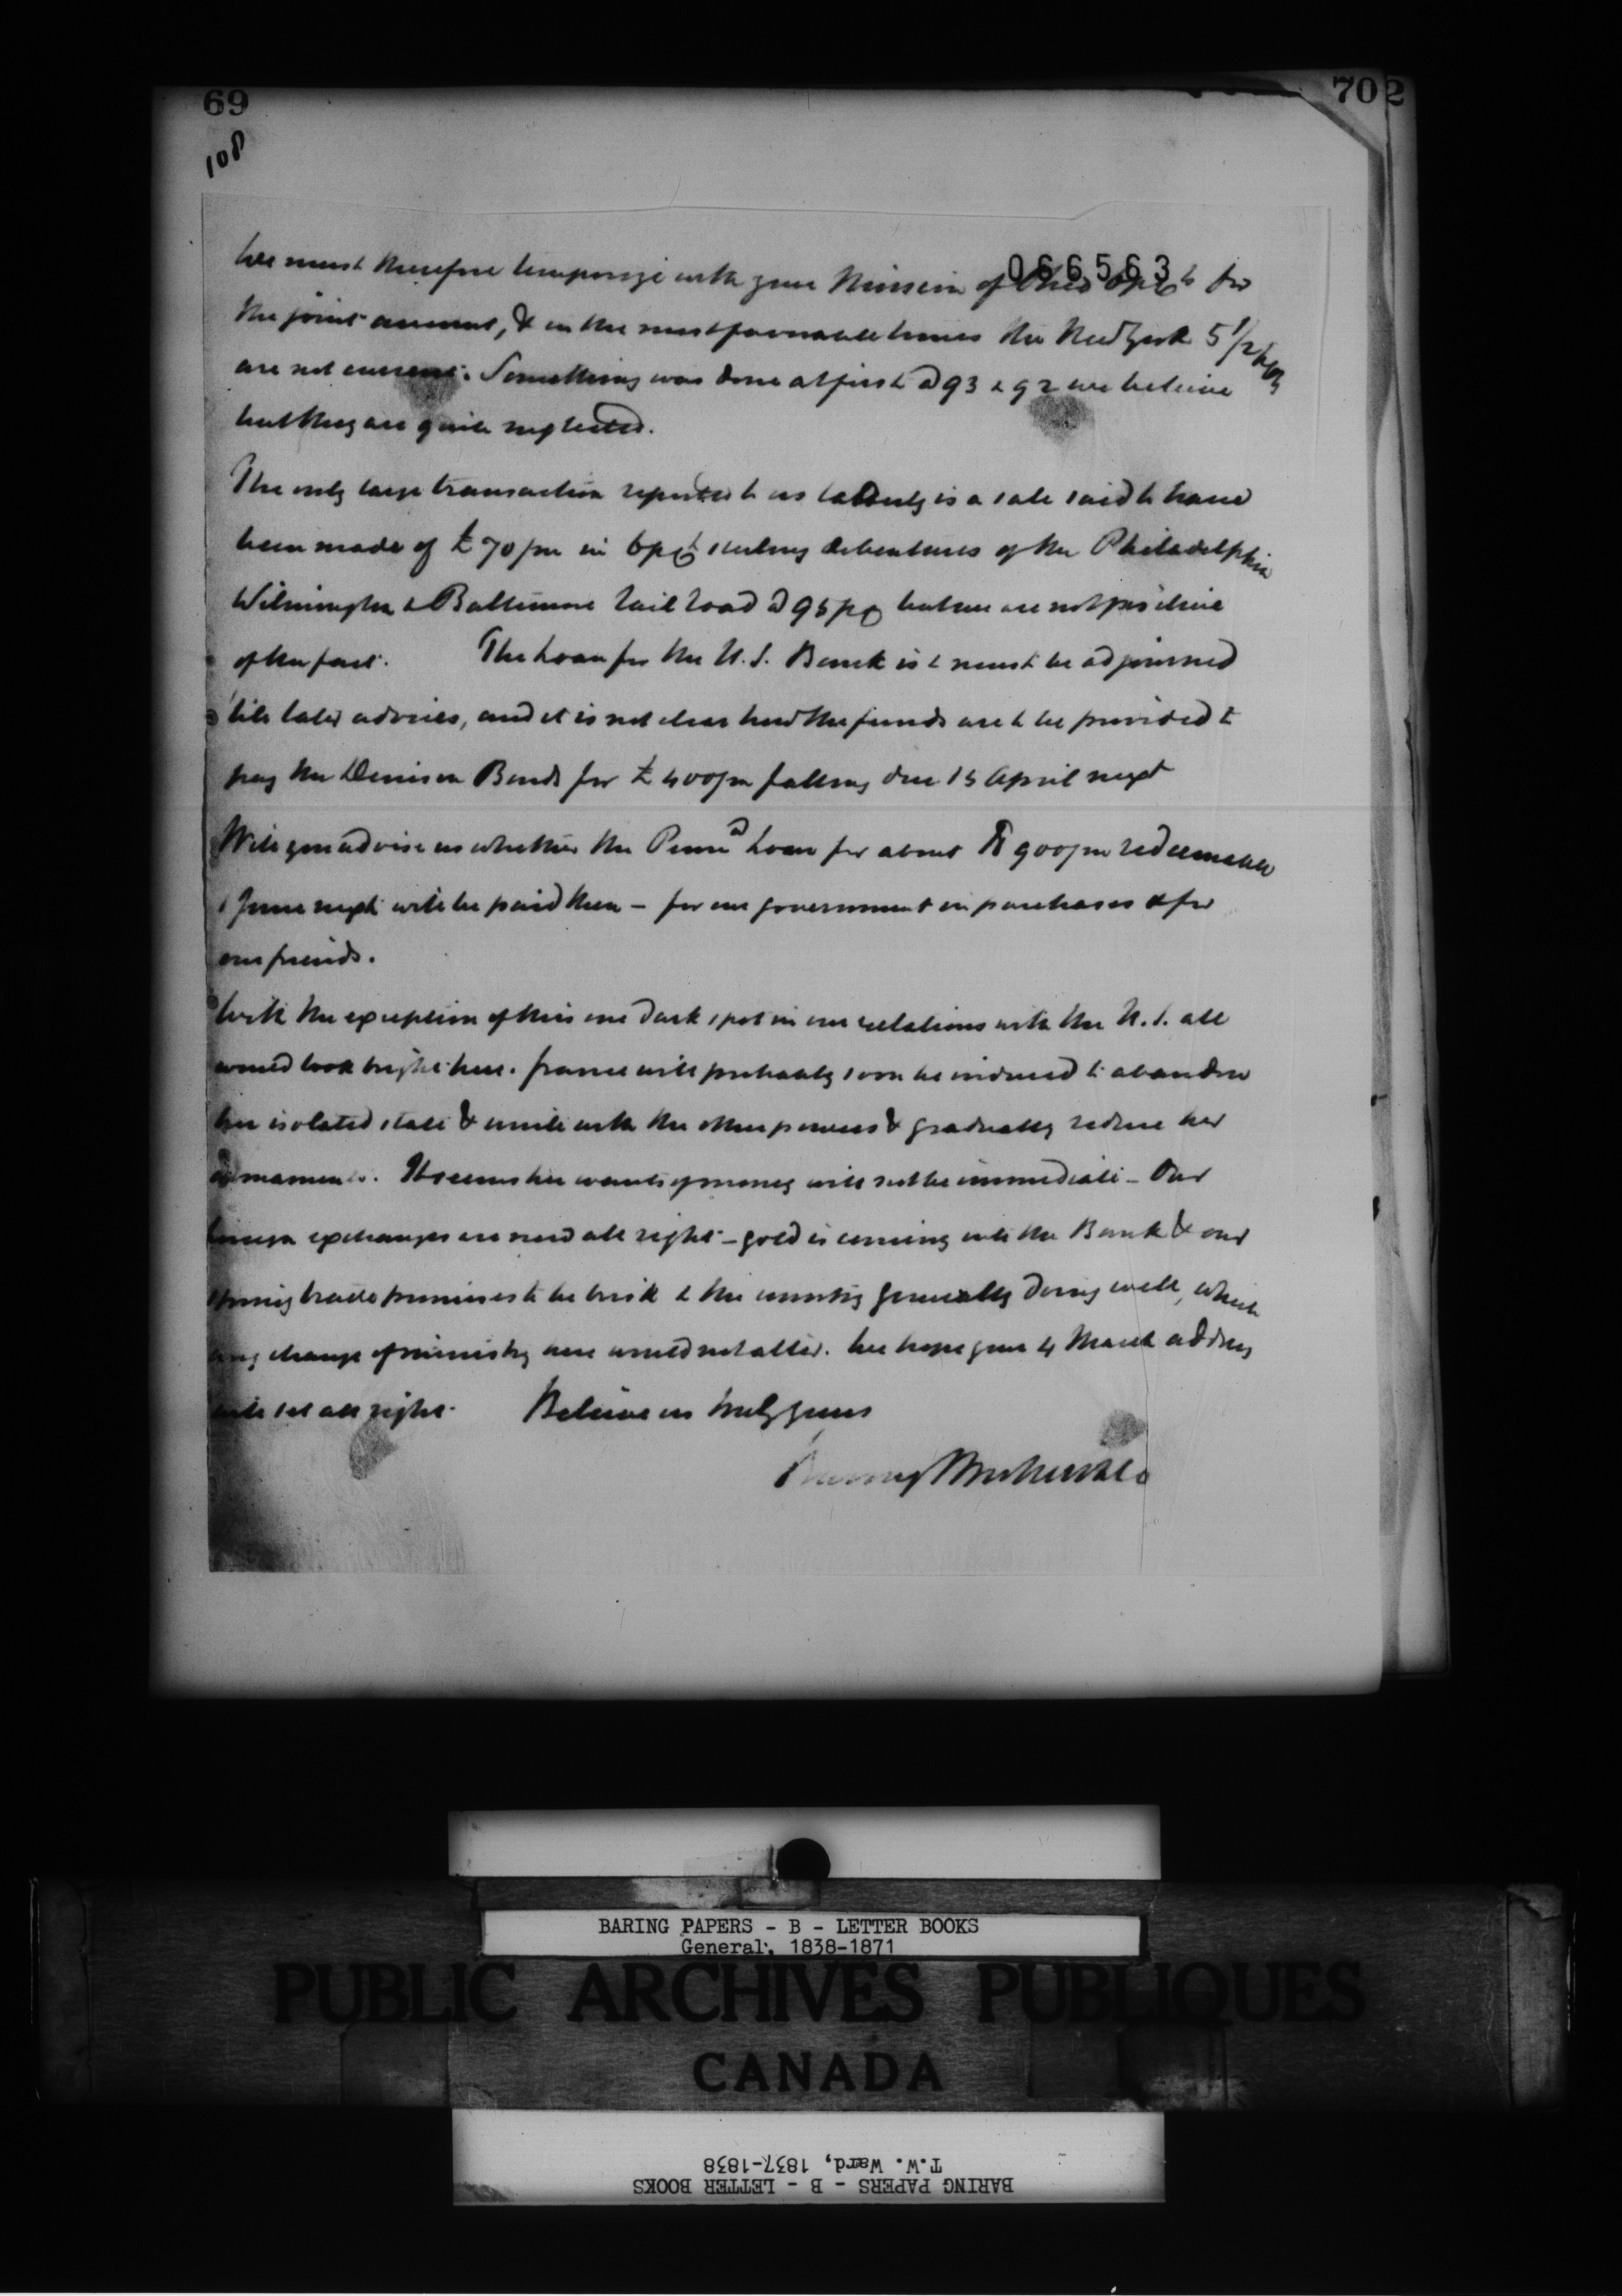 69
702
108
066563
We must therefore temporize with your Mission of Ohio 6 pCt for
the joint account, & in the most favourable times the New York 5 1/2 pCt
are not current. Something was done at first @ 93 & 92 we believe
but they are quite neglected.
The only large transaction reported to us lately is a sale said to have
been made of £70/m in 6 pCt sterling debentures of the Philadelphia
Wilmington & Baltimore Rail Road @ 95 pC but we are not positive
of the fact. The Loan for the U.S. Bank is & must be adjourned
till later advices, and it is not clear how the funds are to be provided to
pay the Denison Bonds for £400/m falling due 15 April next
Will you advise us whether the Penna Loan for about $900/m redeemable
1 June next will be paid then – for our government in purchases & for
our friends.
With the exception of this one dark spot in our relations with the U.S. all
would look bright here. France will probably soon be induced to abandon
her isolated state & unite with the other powers & gradually reduce her
armaments. It seems her wants of money will not be immediate – Our
foreign exchanges are now all right – gold is coming into the Bank & our
Spring trade promises to be brisk & the country generally doing well, which
any change of ministry here would not alter. We hope your 4 March address
will set all right. Believe us truly yours
Baring Brothers & Co
BARING PAPERS - B - LETTER BOOKS
General, 1838-1871
PUBLIC ARCHIVES PUBLIQUES
CANADA
BARING PAPERS - B - LETTER BOOKS
T.W. Ward, 1837-1838